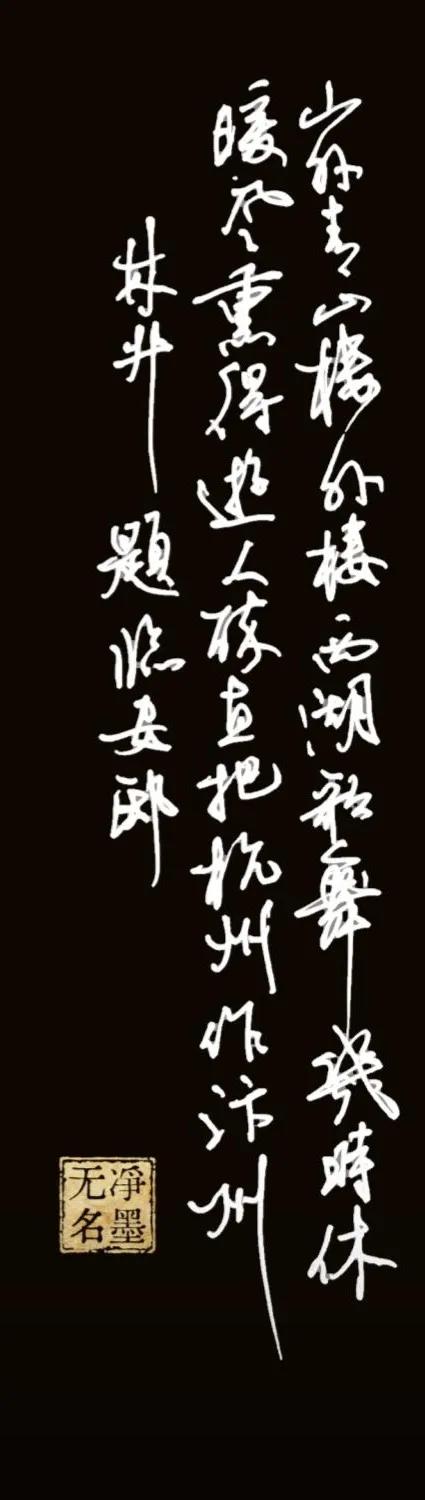 山外青山樓外樓西湖歌舞幾時休
暖风熏得遊人醉直把杭州作汴州
林升 題临安邸
凈墨
无名